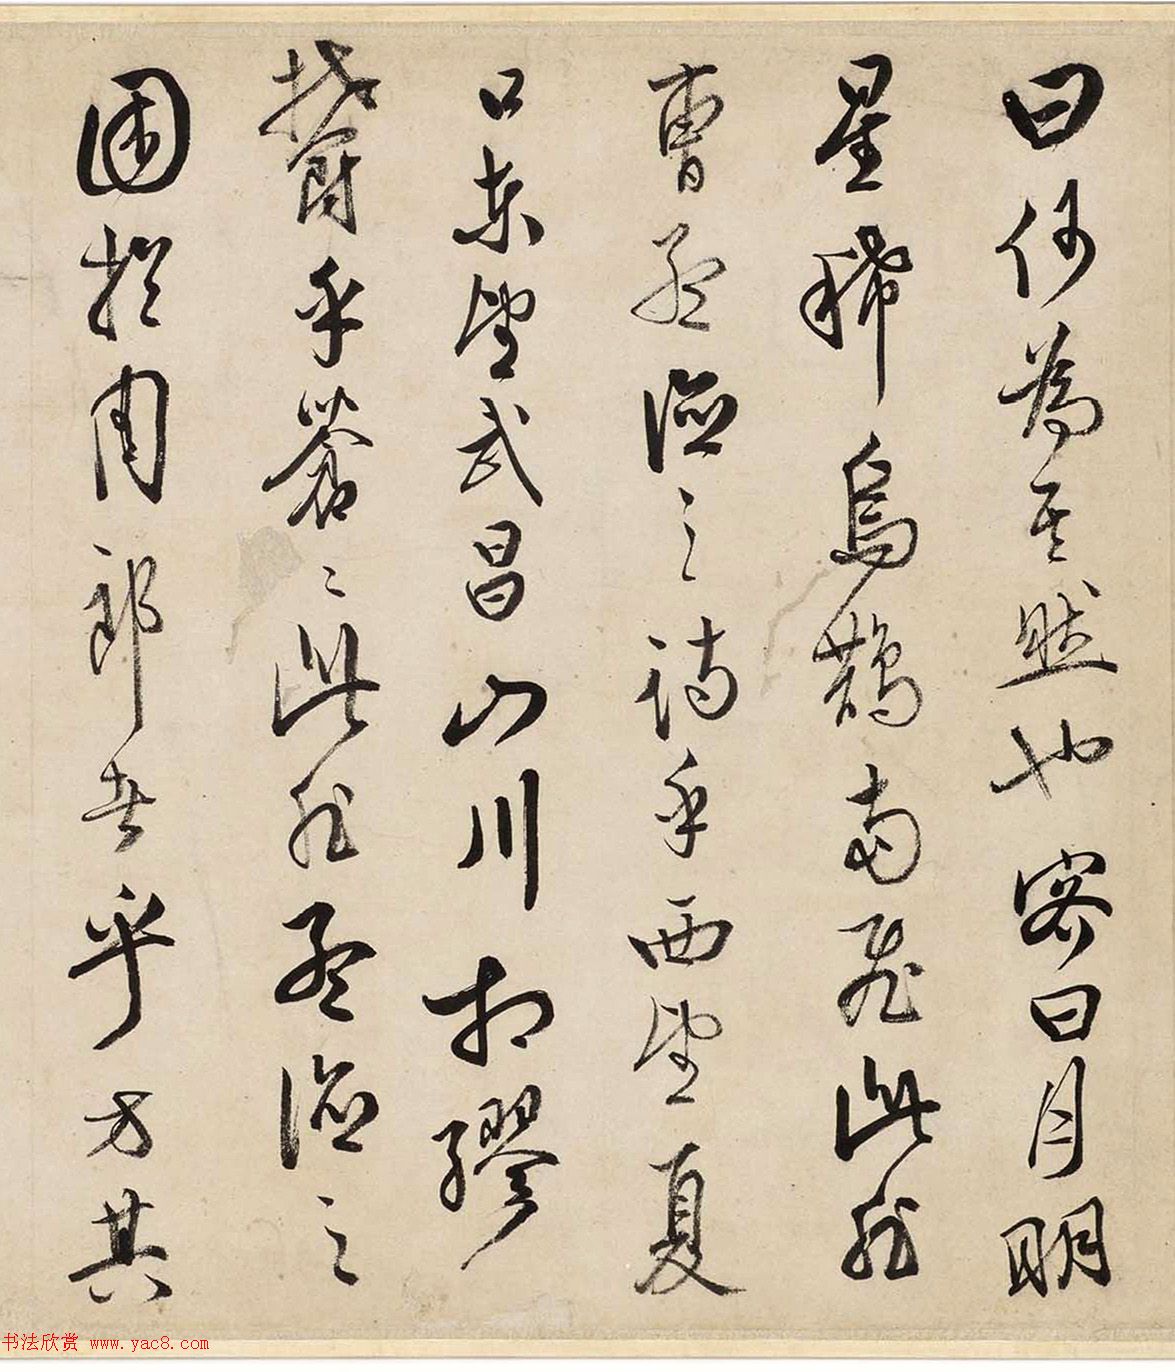 曰何為其然也客曰月明
星稀烏鵲南飛此非
曹孟德之詩乎西望夏
口東望武昌山川相繆
鬱乎蒼〻此非孟德之
困於周郎者乎方其
书法欣赏 www.yac8.com